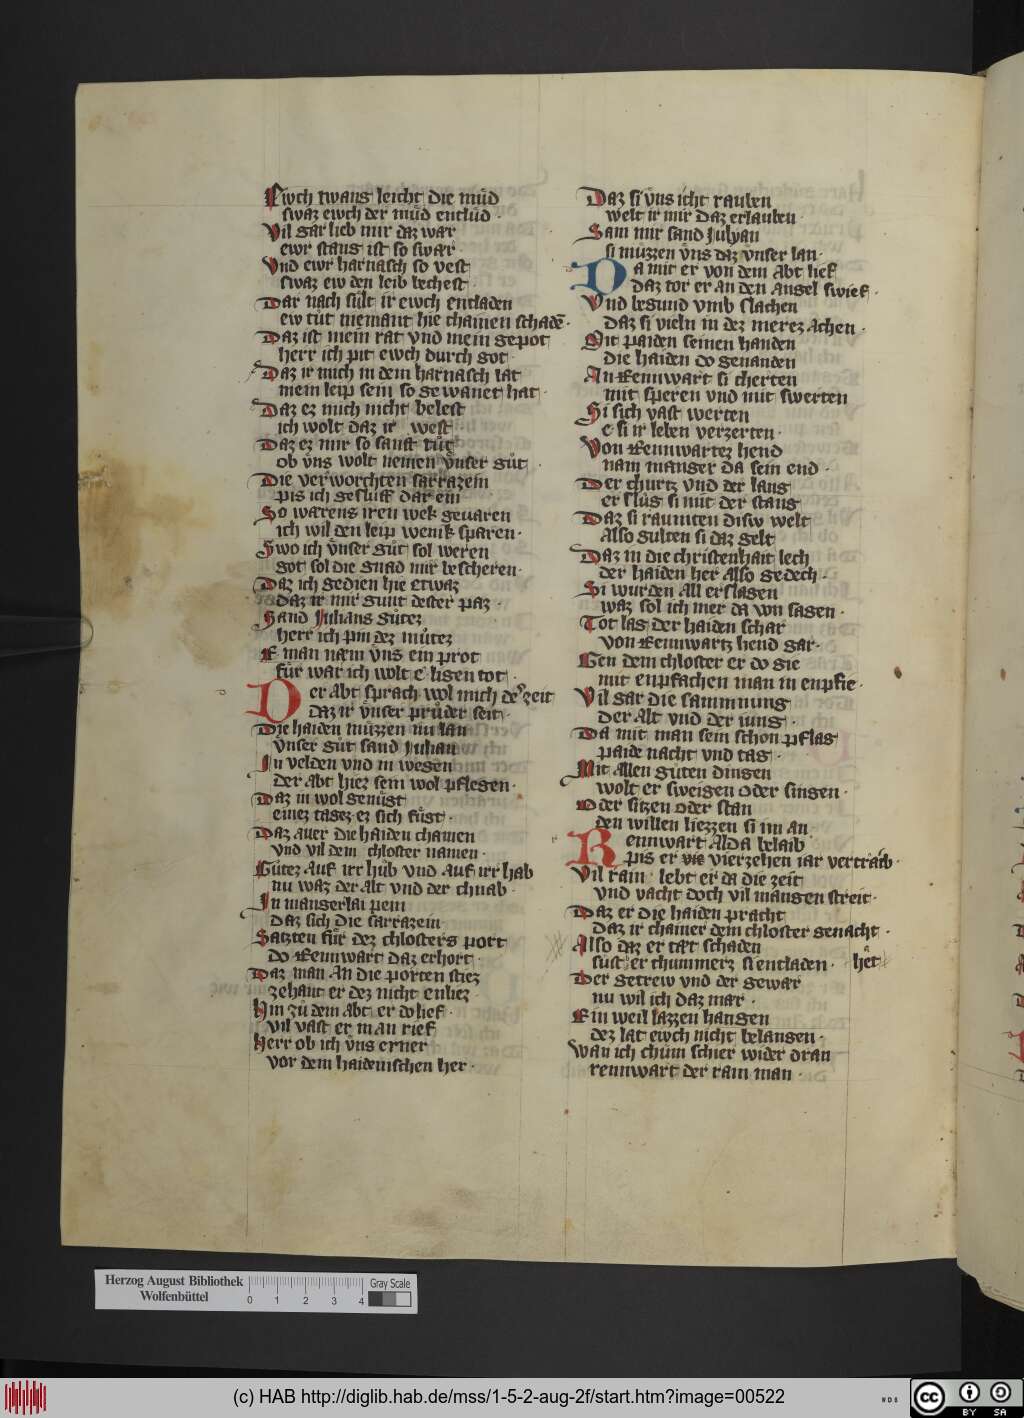 Ewch twang leicht die müd
swaz ewch der müd entlüd ·
Vil gar lieb mir daz wær
ewr stang ist so swær ·
Vnd ewr harnasch so vest
swaz ew den leib lechest ·
Dar nach sült ir ewch entladen
ew tut niemant hie chainen schadē ·
Daz ist mein rat vnd mein gepot
herr ich pit ewch durch got ·
Daz ir mich in dem harnasch lat
mein leip sein so gewanet hat ·
Daz ez mich nicht belest
ich wolt daz ir west
Daz ez mir so sanft tůt
ob vns wolt nemen vnser gůt ·
Die verworchten sarrazein
pis ich gesluff dar ein
So wærens iren wek geuaren
ich wil den leip wenik sparen ·
Swo ich vnser gůt sol weren
got sol die gnad mir bescheren ·
Daz ich gedien hie etwaz
daz ir mir gunt dester paz ·
Sand Julians gůtez
herr ich pin dez můtez
E man næm vns ein prot
für war ich wolt e ligen tot ·
Der Abt sprach wol mich der zeit
daz ir vnser průder seit ·
Die haiden müzzen nu lan
vnser gůt sand Julian
In velden vnd in wegen
der Abt hiez sein wol pflegen ·
Daz in wol genůgt
einez tagez ez sich fůgt ·
Daz auer die haiden chamen
vnd vil dem chloster namen ·
Gůtez auf irr hůb vnd auf irr hab
nu waz der alt vnd der chnab ·
In mangerlai pein
daz sich die sarrazein ·
Satzten für dez chlosters port
do Rennwart daz erhort ·
Daz man an die porten stiez
zehant er dez nicht enliez ·
Hin zů dem Abt er do lief ·
vil vast er man rief
Herr ob ich vns erner
vor dem haidenischen her ·
Daz si vns icht rauben
welt ir mir daz erlauben ·
Sam mir sand Julyan
si müzzen vns daz vnser lan ·
Da mit er von dem Abt lief
daz tor er an den angel swief ·
Vnd begund vmb slachen
daz si vieln in dez merez achen ·
Mit paiden seinen handen
die haiden do genanden
An Rennwart si cherten
mit speren vnd mit swerten
Si sich vast werten
e si ir leben verzerten ·
Von Rennwartez hend
nam manger da sein end ·
Der churtz vnd der lang
er slůg si mit der stang
Daz si raumten disw welt
also gulten si daz gelt
Daz in die christenhait lech
der haiden her also gedech ·
Si wurden all erslagen
waz sol ich mer da von sagen ·
Tot lag der haiden schar
von Rennwartz hend gar ·
Gen dem chloster er do gie
mit enpfachen man in enpfie ·
Vil gar die samnung
der alt vnd der iung ·
Da mit man sein schon pflag
paide nacht vnd tag ·
Mit allen gůten dingen
wolt er sweigen oder singen ·
Oder sitzen oder stan
den willen liezzen si im an
Rennwart alda belaib
pis er vie vierzehen iar vertraib ·
Vil ram lebt er da die zeit
vnd vacht doch vil mangen streit ·
Daz er die haiden pracht
daz ir chainer dem chloster genacht ·
Also daz er tæt schaden
süst er chummerz si entladen · het
Der getrew vnd der gewar
nu wil ich daz mær ·
Ein weil lazzen hangen
dez lat ewch nicht belangen ·
Wan ich chům schier wider dran
rennwart der ram man ·
Herzog August Bibliothek
Wolfenbüttel
0 1 2 3 4
Gray Scale
(c) HAB http://diglib.hab.de/mss/1-5-2-aug-2f/start.htm?image=00522
WDB
cc BY SA